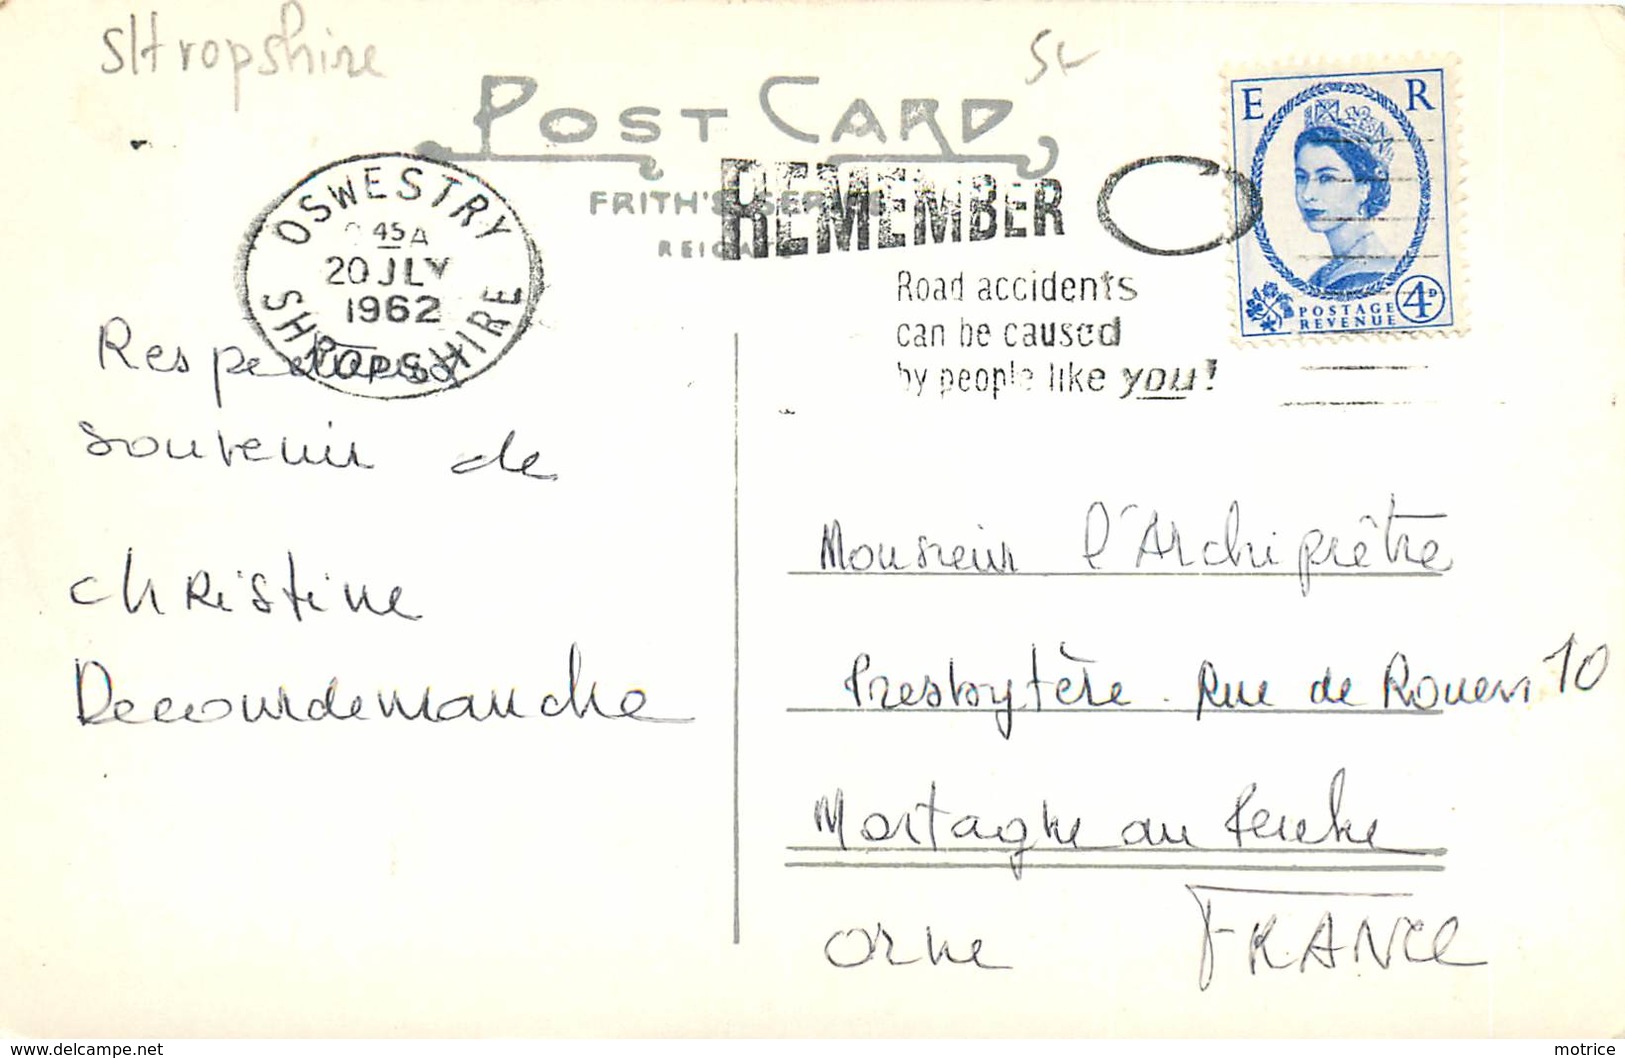 Shropshire
5L
POST CARD
FRITH'S SERIES
REIGATE
OSWESTRY
45 A
20 JLY
1962
SHROPSHIRE
REMEMBER
Road accidents
can be caused
by people like you!
E R
POSTAGE
REVENUE
4D
Respectueux
souvenir de
Christine
Decourdemanche
Monsieur l'Archiprêtre
Presbytère. Rue de Rouen 10
Mortagne au Perche
Orne FRANCE
www.delcampe.net
motrice